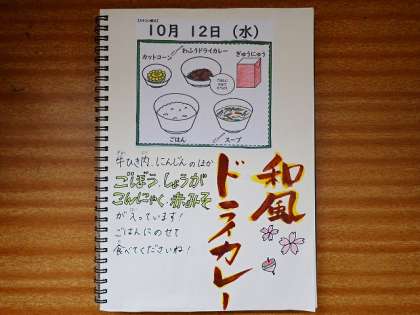 10月 12日 (水)
わふうドライカレー
カットコーン
ぎゅうにゅう
ごはん
スープ
牛ひき肉、にんじんのほか
ごぼう しょうが
こんにゃく 赤みそ
が入っています!
ごはんにのせて
食べてくださいね!
和風
ドライカレー